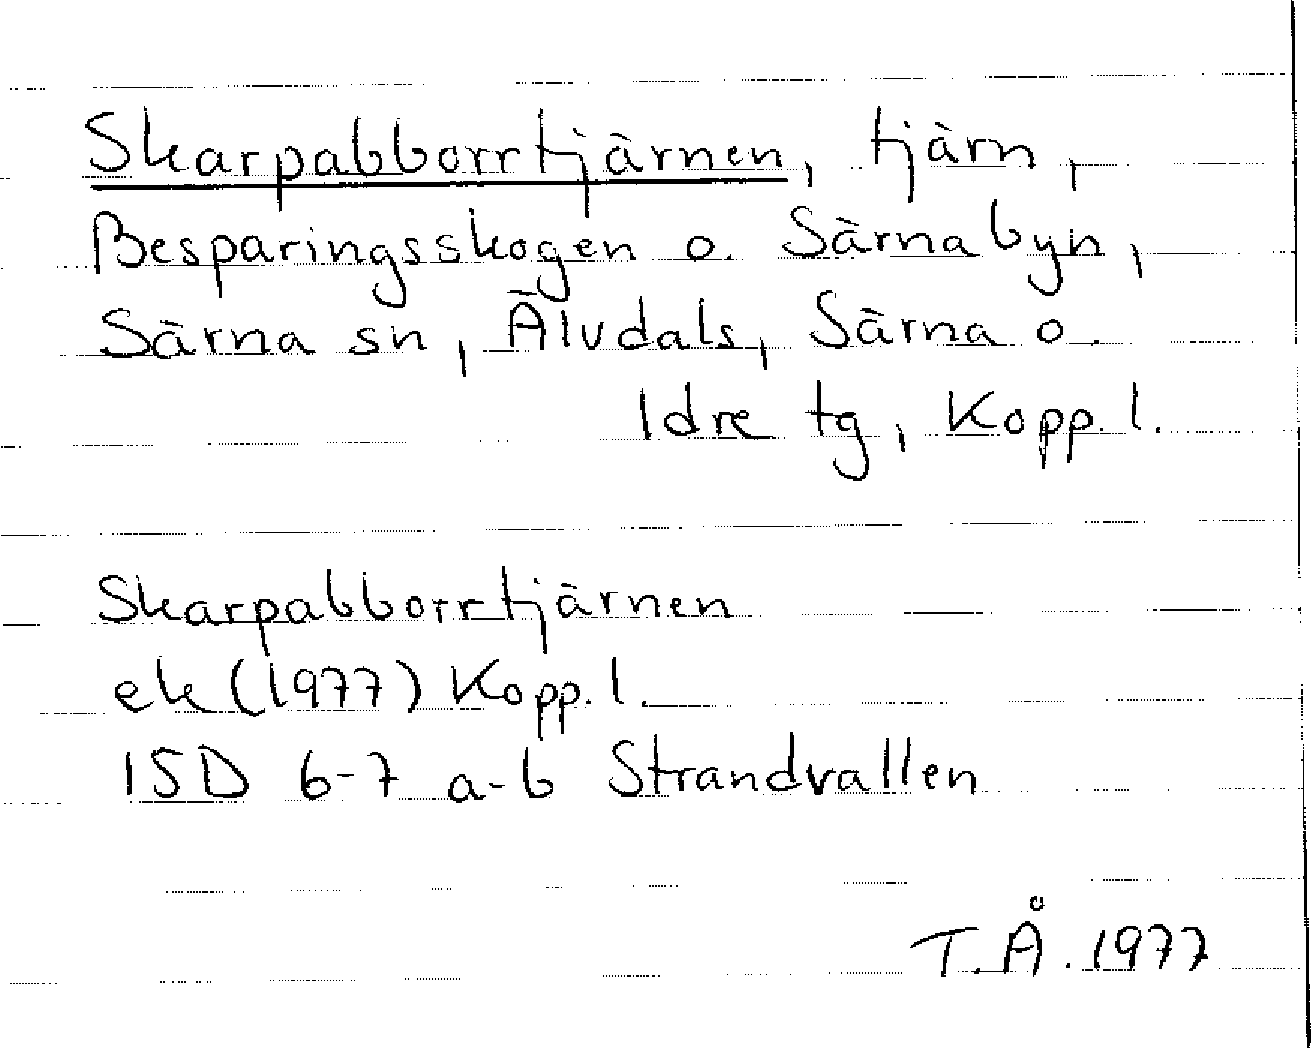 Skarpabborrtjärnen, tjärn,
Besparingsskogen o. Särnabyn,
Särna sn, Älvdals, Särna o.
Idre tg, Kopp. l.
Skarpabborrtjärnen
ek (1977) Kopp. l.
15D 6-7 a-b Strandvallen
T.Å. 1977